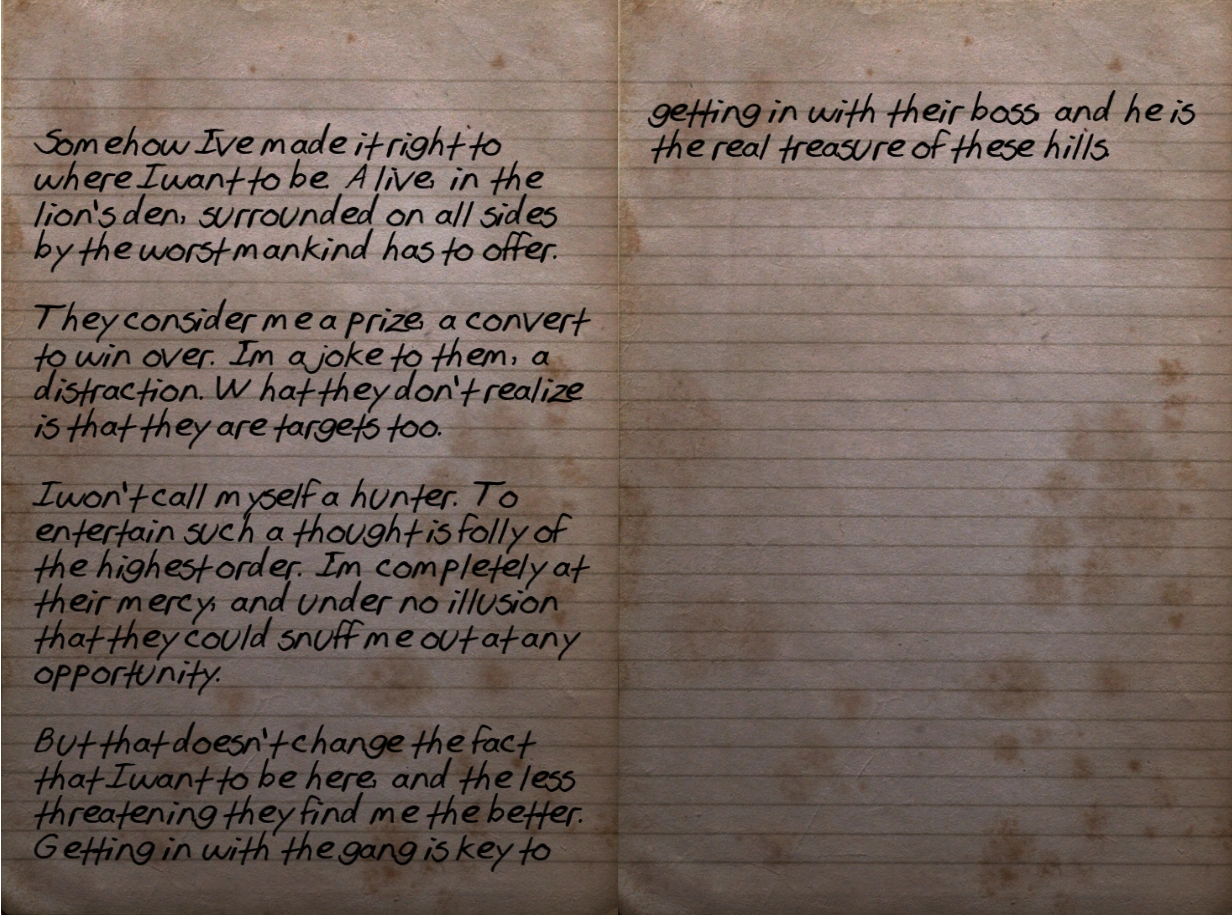 Somehow I've made it right to
where I want to be. Alive, in the
lion's den, surrounded on all sides
by the worst mankind has to offer.
They consider me a prize, a convert
to win over. I'm a joke to them, a
distraction. What they don't realize
is that they are targets too.
I won't call myself a hunter. To
entertain such a thought is folly of
the highest order. I'm completely at
their mercy, and under no illusion
that they could snuff me out at any
opportunity.
But that doesn't change the fact
that I want to be here, and the less
threatening they find me the better.
Getting in with the gang is key to
getting in with their boss, and he is
the real treasure of these hills.